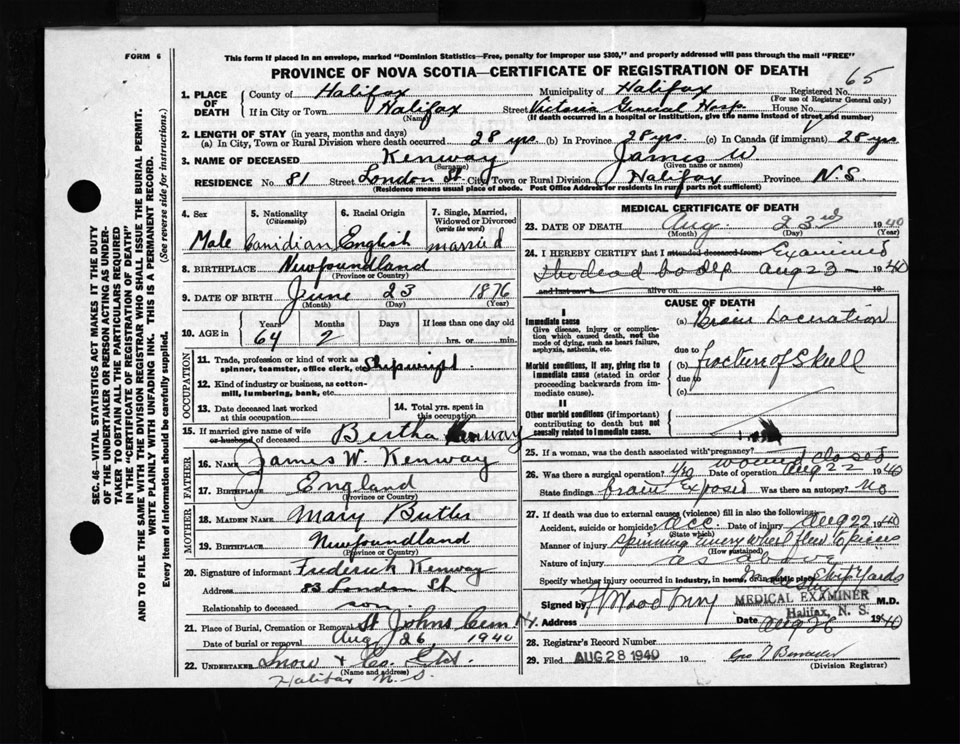 FORM 6
This form if placed in an envelope, marked "Dominion Statistics—Free, penalty for improper use $300," and properly addressed will pass through the mail "FREE"
PROVINCE OF NOVA SCOTIA—CERTIFICATE OF REGISTRATION OF DEATH
65
1. PLACE OF DEATH
County of Halifax Municipality of Halifax Registered No.
(For use of Registrar General only)
If in City or Town Halifax Street Victoria General Hosp. House No.
(Name) (If death occurred in a hospital or institution, give the name instead of street and number)
2. LENGTH OF STAY (in years, months and days)
(a) In City, Town or Rural Division where death occurred 28 yrs. (b) In Province 28 yrs. (c) In Canada (if immigrant) 28 yrs
3. NAME OF DECEASED Kenway James W
(Surname) (Given name or names)
RESIDENCE No. 81 Street London St. City, Town or Rural Division Halifax Province N.S.
(Residence means usual place of abode. Post Office Address for residents in rural parts not sufficient)
4. Sex
Male
5. Nationality
(Citizenship)
Canidian
6. Racial Origin
English
7. Single, Married, Widowed or Divorced
(write the word)
married
8. BIRTHPLACE Newfoundland
(Province or Country)
9. DATE OF BIRTH June 23 1876
(Month) (Day) (Year)
10. AGE in Years Months Days If less than one day old
64 2 hrs. or min.
OCCUPATION
11. Trade, profession or kind of work as spinner, teamster, office clerk, etc. Shipwright
12. Kind of industry or business, as cotton-mill, lumbering, bank, etc.
13. Date deceased last worked at this occupation
14. Total yrs. spent in this occupation
15. If married give name of wife or husband of deceased Bertha Kenway
FATHER
16. NAME James W. Kenway
17. Birthplace England
(Province or Country)
MOTHER
18. MAIDEN NAME Mary Butler
19. BIRTHPLACE Newfoundland
(Province or Country)
20. Signature of informant Frederick Kenway
Address 83 London St.
Relationship to deceased son
21. Place of Burial, Cremation or Removal St Johns Cem
Date of burial or removal Aug 26 1940
22. UNDERTAKER Snow & Co. Ltd.
(Name and address)
Halifax N. S.
MEDICAL CERTIFICATE OF DEATH
23. DATE OF DEATH Aug. 23rd 1940
(Month) (Day) (Year)
24. I HEREBY CERTIFY that I attended deceased from Examined
the dead body Aug 23 1940
and last saw h alive on 19
CAUSE OF DEATH
I
Immediate cause
Give disease, injury or complication which caused death, not the mode of dying, such as heart failure, asphyxia, asthenia, etc.
(a) Brain Laceration
due to
Morbid conditions, if any, giving rise to immediate cause (stated in order proceeding backwards from immediate cause).
(b) fracture of Skull
due to
(c)
II
Other morbid conditions (if important) contributing to death but not causally related to immediate cause.
25. If a woman, was the death associated with pregnancy?
wound closed
26. Was there a surgical operation? yes Date of operation Aug 22 1940
State findings brain exposed Was there an autopsy? no
27. If death was due to external causes (violence) fill in also the following:
Accident, suicide or homicide? acc. Date of injury Aug 22 1940
(State which)
Manner of injury spinning emery wheel flew to pieces
(How sustained)
Nature of injury as above
Specify whether injury occurred in industry, in home, or in public place Ship Yards
Signed by M.D.
MEDICAL EXAMINER
Halifax, N. S.
Address
Date Aug 26 1940
28. Registrar's Record Number
29. Filed AUG 28 1940 19
(Division Registrar)
SEC. 46—VITAL STATISTICS ACT MAKES IT THE DUTY OF THE UNDERTAKER OR PERSON ACTING AS UNDERTAKER TO OBTAIN ALL THE PARTICULARS REQUIRED IN THE "CERTIFICATE OF REGISTRATION OF DEATH"
AND TO FILE THE SAME WITH THE DIVISION REGISTRAR WHO SHALL ISSUE THE BURIAL PERMIT.
WRITE PLAINLY WITH UNFADING INK. THIS IS A PERMANENT RECORD.
Every item of information should be carefully supplied. (See reverse side for instructions.)